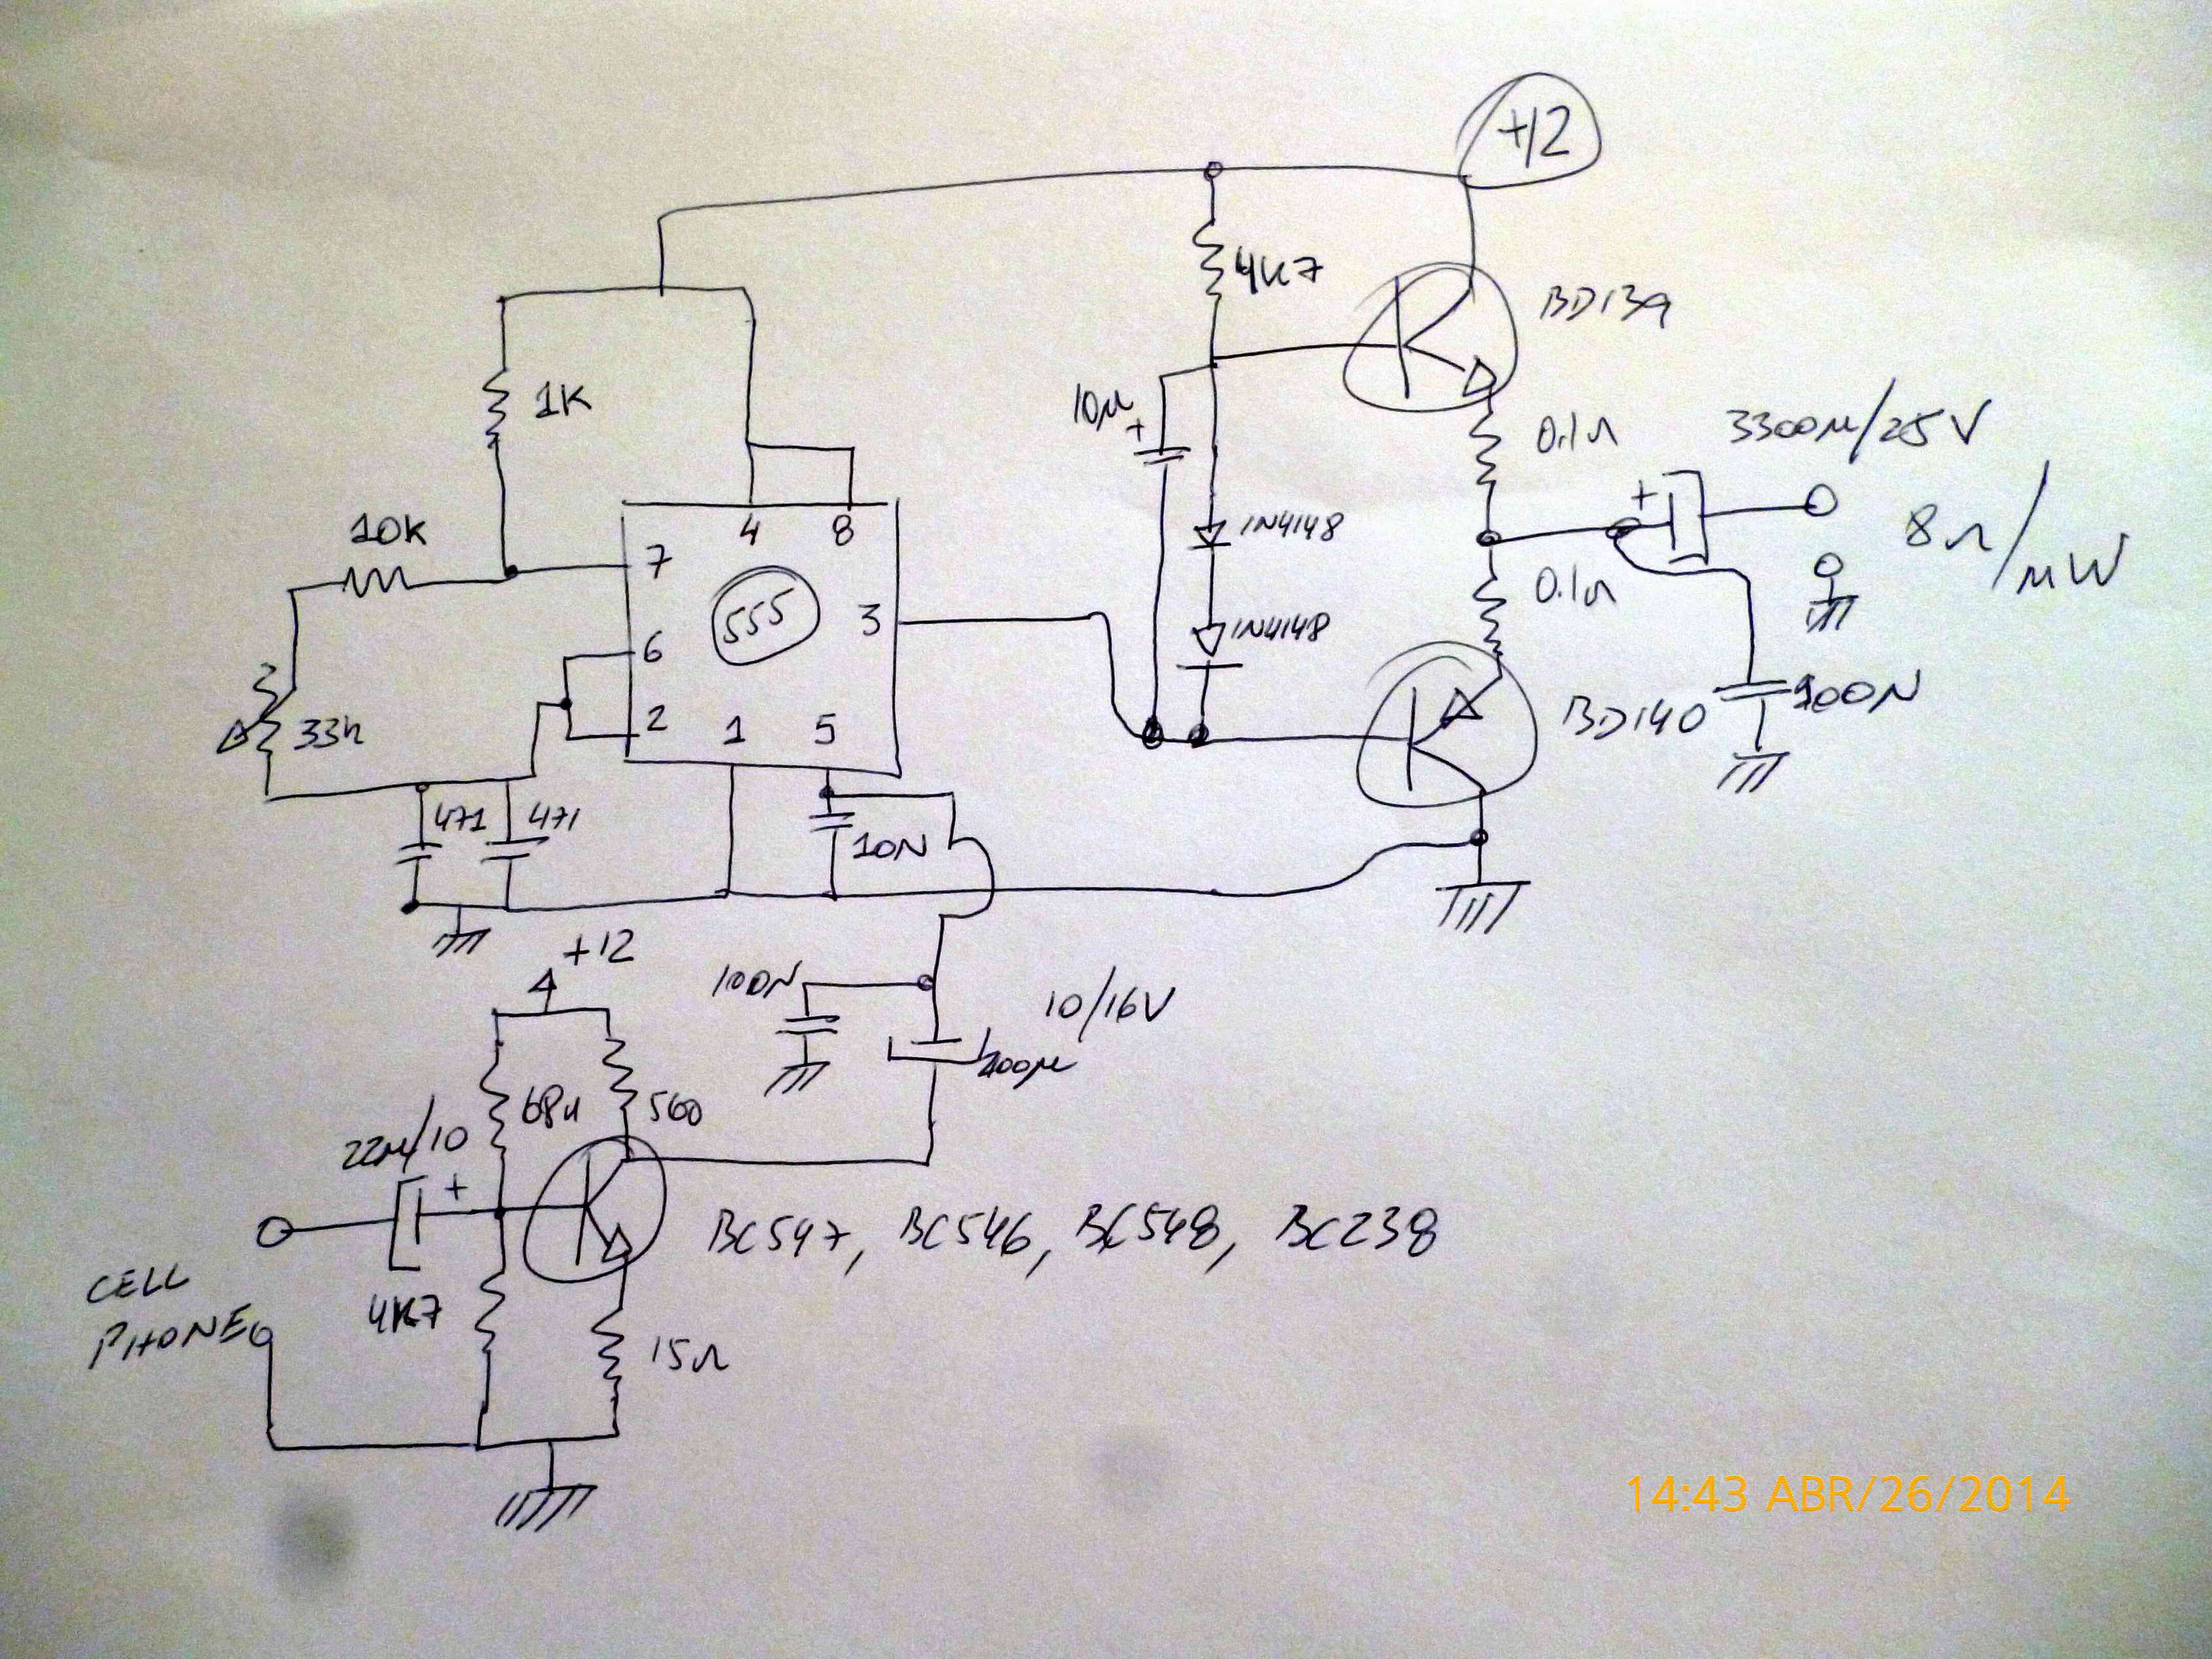 +12
4K7
BD139
1K
10µ
+
0.1Ω
3300µ/25V
+
10K
4
8
1N4148
8Ω/
7
555
3
0.1Ω
1N4148
6
33k
2
1
5
BD140
100N
471
471
10N
+12
100N
10/16V
100µ
68k
560
22µ/10
+
BC547, BC546, BC548, BC238
CELL
PHONE
4K7
15Ω
14:43 ABR/26/2014